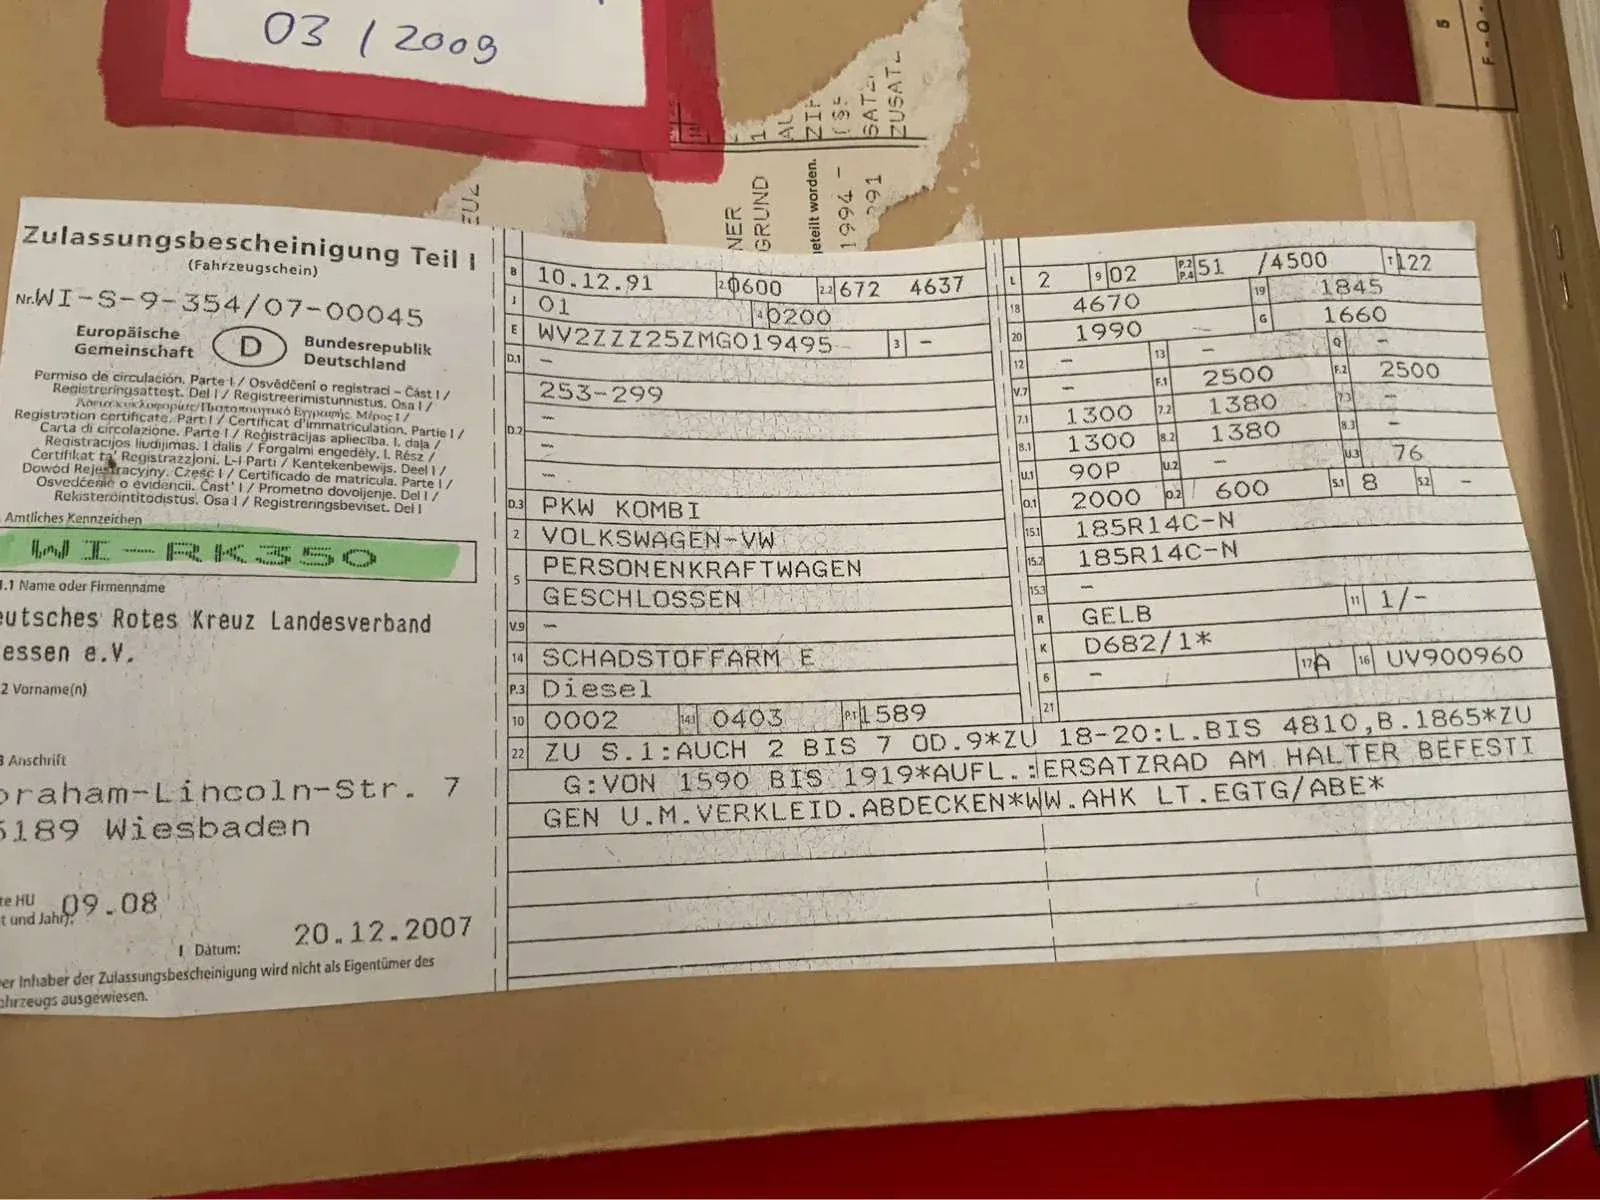 03 / 2009
5
F-O-
1
AU
ZIF
(§
SATZ
ZUSATZ
NER
GRUND
eteilt worden.
1994 -
991
EUZ
Zulassungsbescheinigung Teil I
(Fahrzeugschein)
Nr. WI-S-9-354/07-00045
Europäische Gemeinschaft
D
Bundesrepublik Deutschland
Permiso de circulación. Parte I / Osvědčení o registraci – Část I /
Registreringsattest. Del I / Registreerimistunnistus. Osa I /
Registration certificate. Part I / Certificat d'immatriculation. Partie I /
Carta di circolazione. Parte I / Reģistrācijas apliecība. I. daļa /
Registracijos liudijimas. I dalis / Forgalmi engedély. I. Rész /
Ċertifikat ta' Reġistrazzjoni. L-I Parti / Kentekenbewijs. Deel I /
Dowód Rejestracyjny. Część I / Certificado de matrícula. Parte I /
Osvedčenie o evidencii. Časť I / Prometno dovoljenje. Del I /
Rekisteröintitodistus. Osa I / Registreringsbeviset. Del I
Amtliches Kennzeichen
WI-RK350
.1 Name oder Firmenname
eutsches Rotes Kreuz Landesverband
essen e.V.
2 Vorname(n)
3 Anschrift
braham-Lincoln-Str. 7
5189 Wiesbaden
te HU
t und Jahr): 09.08
I Datum: 20.12.2007
er Inhaber der Zulassungsbescheinigung wird nicht als Eigentümer des
ahrzeugs ausgewiesen.
B 10.12.91 2.1 0600 2.2 672 4637
J 01 4 0200
E WV2ZZZ25ZMG019495 3 –
D.1 –
D.2 253-299
–
–
–
D.3 PKW KOMBI
2 VOLKSWAGEN-VW
5 PERSONENKRAFTWAGEN
GESCHLOSSEN
V.9 –
14 SCHADSTOFFARM E
P.3 Diesel
10 0002 14.1 0403 P.1 1589
L 2 9 02 P.2 P.4 51 /4500 T 122
18 4670 19 1845
20 1990 G 1660
12 – 13 – Q –
V.7 – F.1 2500 F.2 2500
7.1 1300 7.2 1380 7.3 –
8.1 1300 8.2 1380 8.3 –
U.1 90P U.2 – U.3 76
O.1 2000 O.2 600 S.1 8 S.2 –
15.1 185R14C-N
15.2 185R14C-N
15.3 –
R GELB 11 1/-
K D682/1*
6 – 17 A 16 UV900960
21
22 ZU S.1:AUCH 2 BIS 7 OD.9*ZU 18-20:L.BIS 4810,B.1865*ZU
G:VON 1590 BIS 1919*AUFL.:ERSATZRAD AM HALTER BEFESTI
GEN U.M.VERKLEID.ABDECKEN*WW.AHK LT.EGTG/ABE*